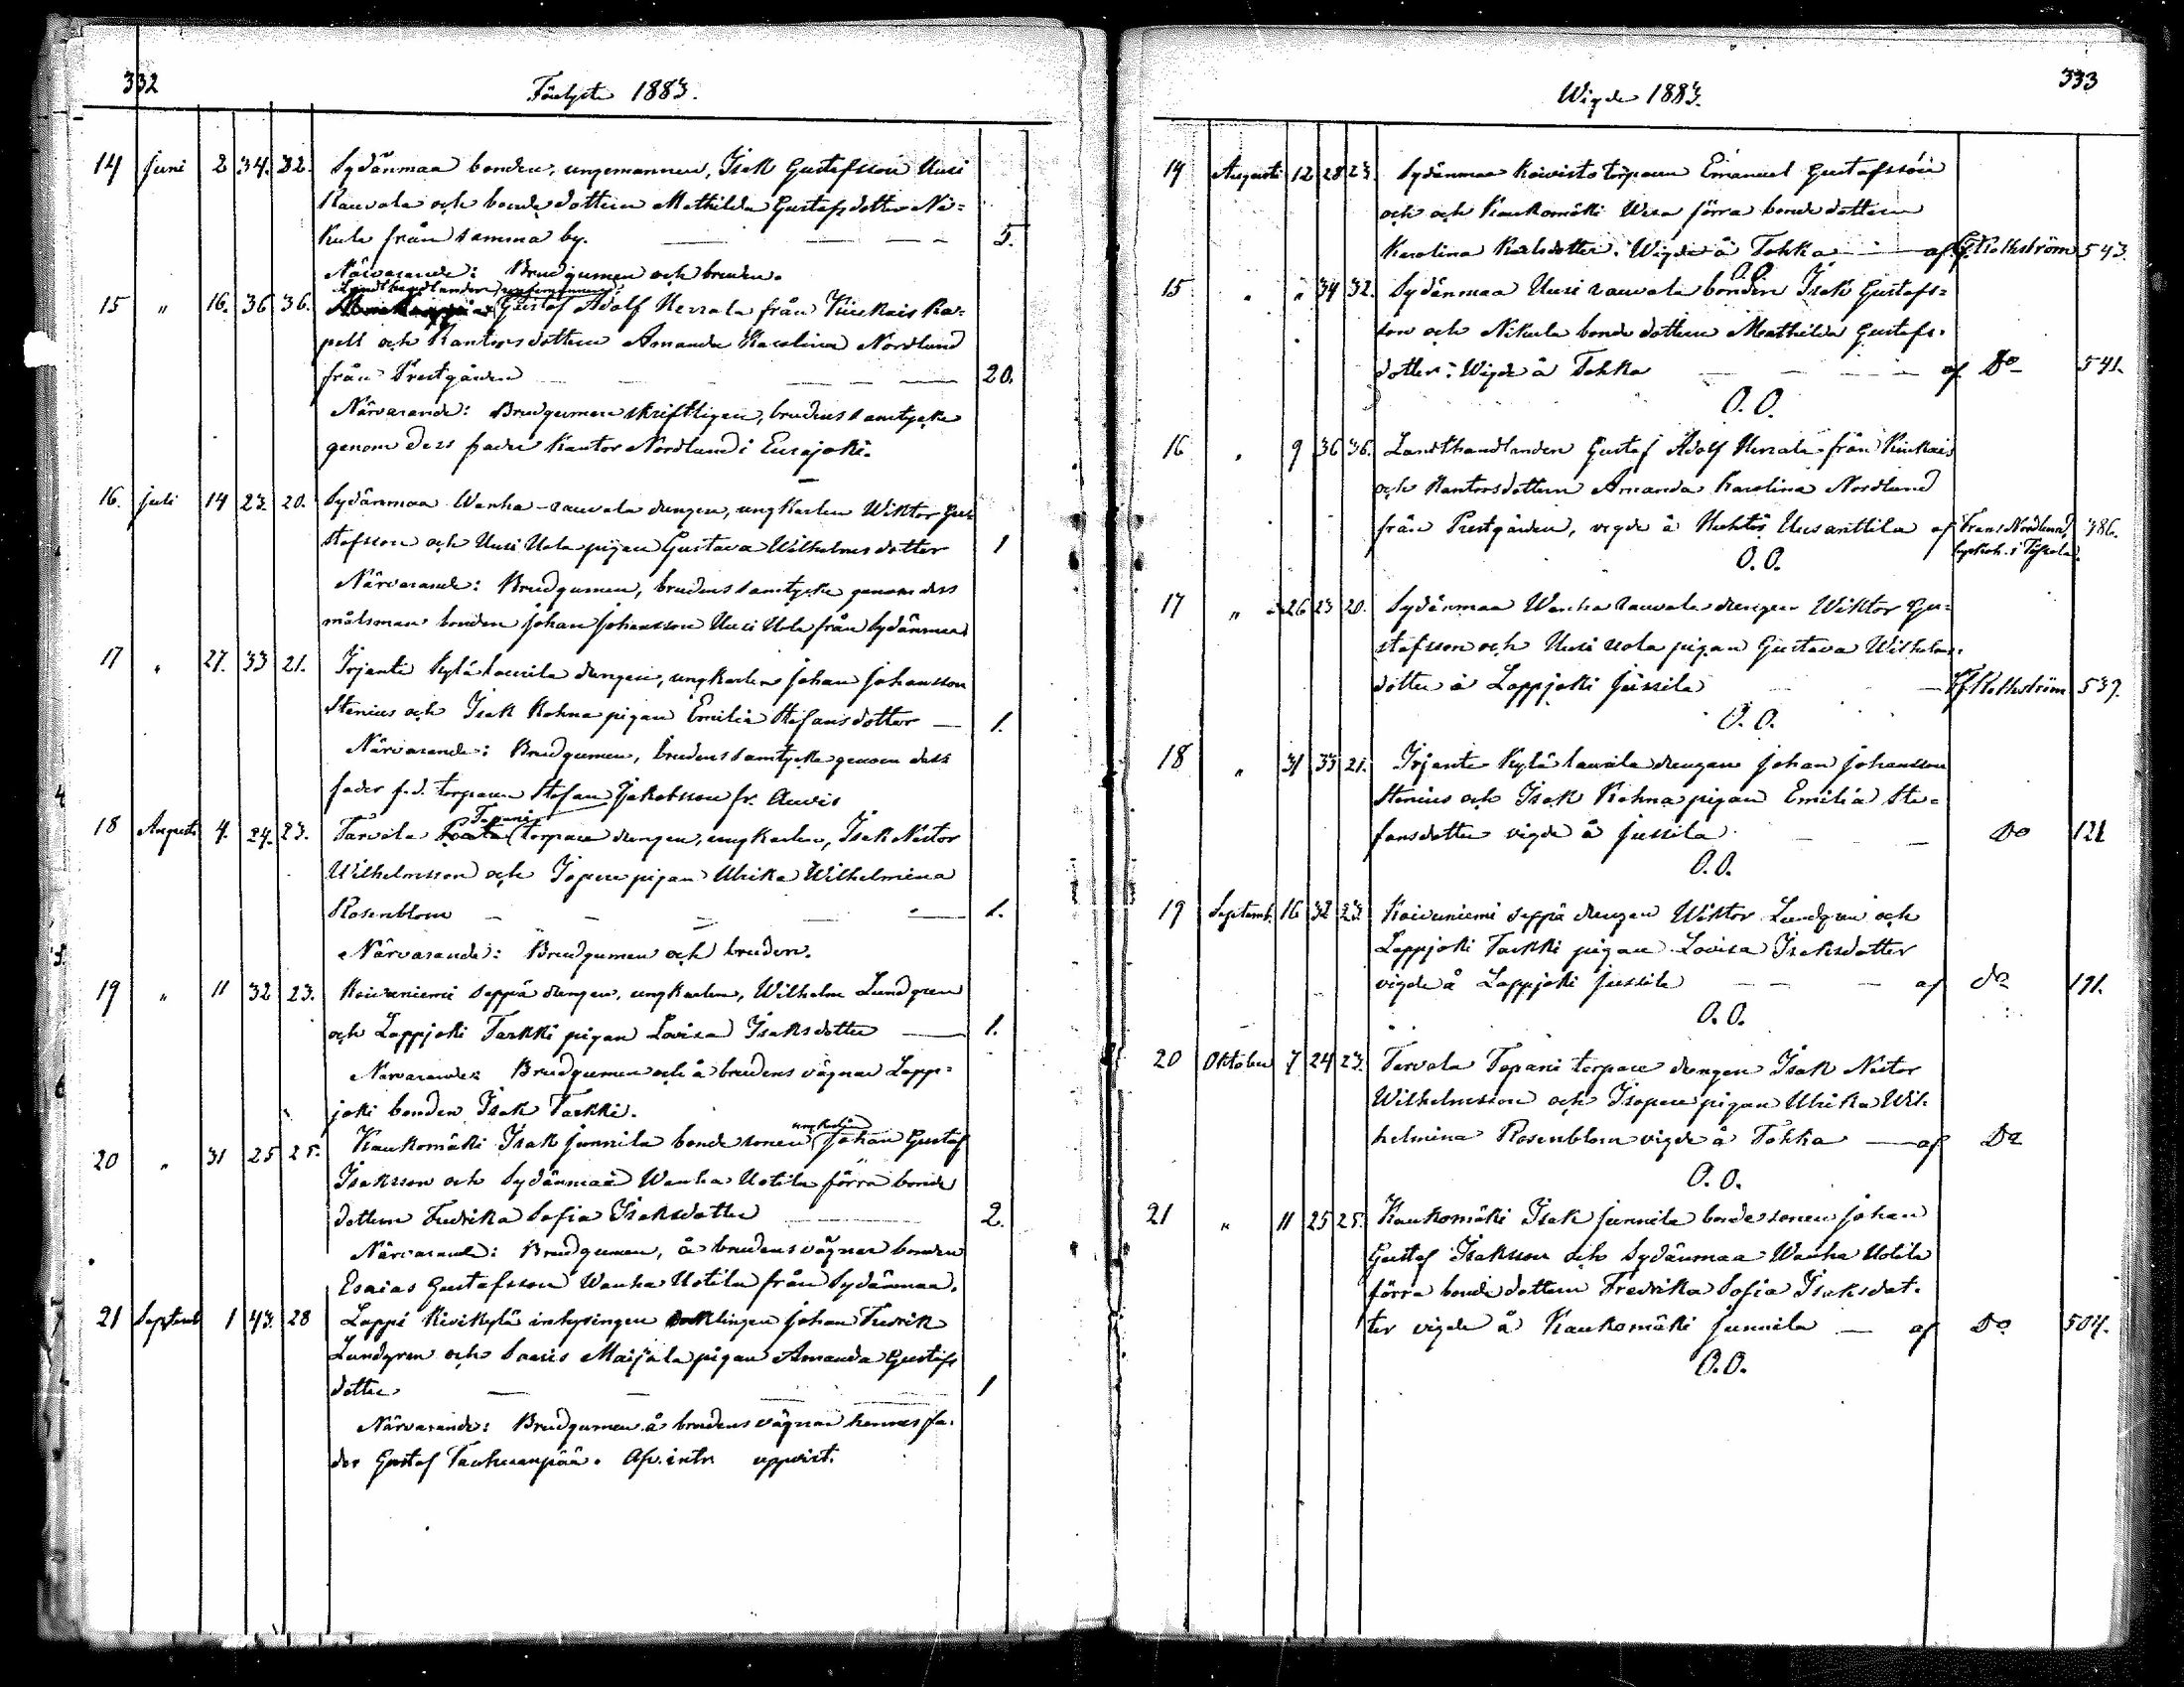 332
Förelyste 1883.
14 Juni 2 34. 32. Sydänmaa bonden, ungemannen, Isak Gustafsson Uusi
Rauvala och bondedottern Mathilda Gustafsdotter Ni=
kula från samma by. 5.
Närvarande: Brudgumen och bruden.
Landthandlanden ungemannen
15 " 16. 36 36. Gustaf Adolf Uerala från Kiukais Ka=
pell och Kantorsdottern Amanda Karolina Nordlund
från Prestgården 20.
Närvarande: Brudgumen skriftligen, brudens samtycke
genom dess fader Kantor Nordlund i Eurajoki.
16. Juli 14 23. 20. Sydänmaa Wanha-rauvala drengen, ungkarlen Wiktor Gu=
stafsson och Uusi Uola pigan Gustava Wilhelmsdotter 1
Närvarande: Brudgumen, brudens samtycke genom dess
målsman bonden Johan Johansson Uusi Uola från Sydänmaa
17 " 27. 33 21. Irjante Kylä laurila drengen, ungkarlen Johan Johansson
Stenius och Isak Kohna pigan Emilia Stefansdotter 1.
Närvarande: Brudgumen, brudens samtycke genom dess
fader f.d. torparen Stefan Jakobsson fr. Auvis
Tapani
18 Augusti 4. 24. 23. Tarvola torpare drengen, ungkarlen, Isak Nestor
Wilhelmsson och Isopere pigan Ulrika Wilhelmina
Rosenblom 1.
Närvarande: Brudgumen och bruden.
19 " 11 32 23. Koivuniemi seppä drengen, ungkarlen, Wilhelm Lundgren
och Lappjoki Tarkki pigan Lovisa Isaksdotter 1.
Närvarande: Brudgumen och å brudens vägnar Lapp=
joki bonden Isak Tarkki.
ungkarlen
20 " 31 25 25. Kaukomäki Isak junnila bondesonen Johan Gustaf
Isaksson och Sydänmaa Wanha Uotila förra bonde
dottern Fredrika Sofia Isaksdotter 2.
Närvarande: Brudgumen, å brudens vägnar bonden
Esaias Gustafsson Wanha Uotila från Sydänmaa.
21 Septemb 1 43. 28 Lappi Kivikylä inhysingen enklingen Johan Fredrik
Lundgren och Saeris Maijala pigan Amanda Gustafs
dotter 1
Närvarande: Brudgumen å brudens vägnar hennes fa=
der Gustaf Tauhuanpää. Afv. intr. uppvist.
333
Wigde 1883.
14 Augusti 12 28 23. Sydänmaa Koivisto torparen Emanuel Gustafsson
och och Kaukomäki Wesa förra bondedottern
Karolina Karlsdotter. Wigde å Tokka af F. Rothström 543.
O.O.
15 " " 34 32. Sydänmaa Uusi rauvala bonden Isak Gustafs=
son och Nikula bondedottern Mathilda Gustafs=
dotter: Wigde å Tokka af Do 541.
O.O.
16 " 9 36 36. Landthandlanden Gustaf Adolf Uerala från Kiukais
och Kantorsdottern Amanda Karolina Nordlund
från Prestgården, vigde å Kuhtis Uusanttila af Frans Nordlund, 386.
O.O.
17 " 26 23 20. Sydänmaa Wanha rauvala drengen Wiktor Gu=
stafsson och Uusi uola pigan Gustava Wilhelms=
dotter å Lappjoki Jussila F. Rothström 539.
O.O.
18 " 31 33 21. Irjante Kylä laurila drengen Johan Johansson
Stenius och Isak Kohna pigan Emilia Ste=
fansdotter vigde å Jussila Do 121
O.O.
19 Septemb. 16 32 23 Koivuniemi seppä drengen Wiktor Lundgren och
Lappjoki Tarkki pigan Lovisa Isaksdotter
vigde å Lappjoki Jussila af do 191.
O.O.
20 Oktober 7 24 23. Tarvola Tapani torpare drengen Isak Nestor
Wilhelmsson och Isopere pigan Ulrika Wil=
helmina Rosenblom vigde å Tokka af Do
O.O.
21 " 11 25 25. Kaukomäki Isak junnila bondesonen Johan
Gustaf Isaksson och Sydänmaa Wanha Uotila
förra bondedottern Fredrika Sofia Isaksdot=
ter vigde å Kaukomäki Junnila af Do 504.
O.O.